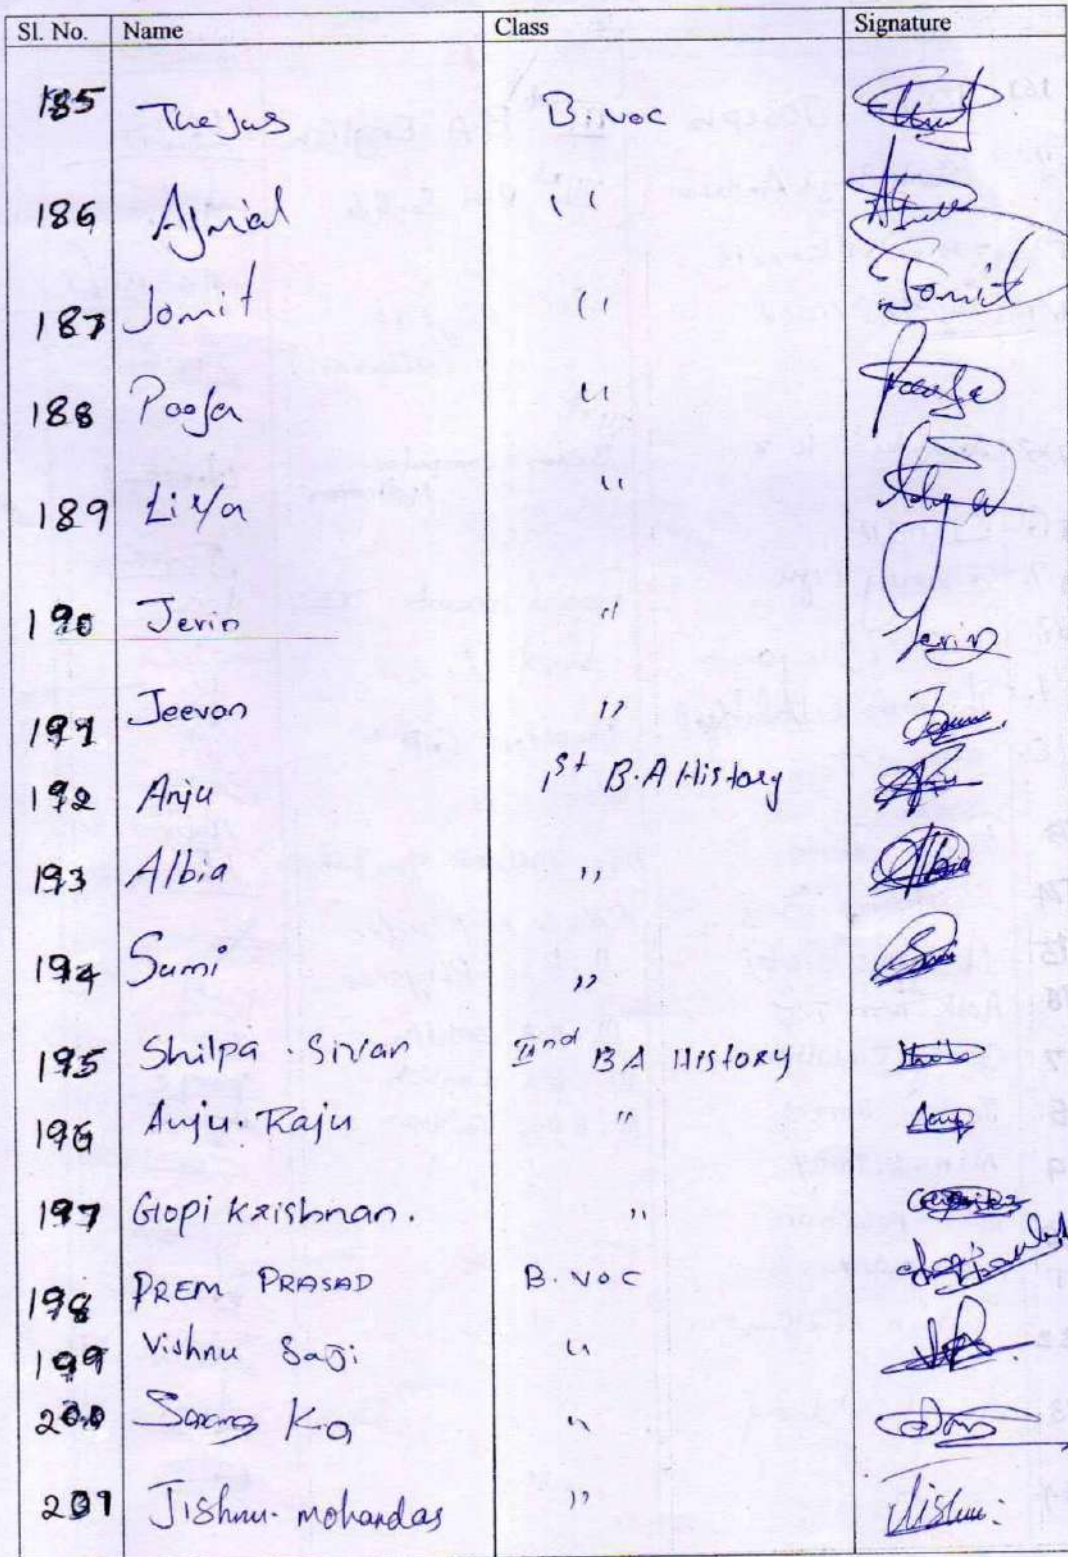 Sl. No. Name Class Signature
185 Thejas B.voc
186 Ajmal ,,
187 Jomit ,, Jomit
188 Pooja ,, Pooja
189 Liya ,,
190 Jerin ,, Jerin
191 Jeevan ,,
192 Anju 1st B.A History
193 Albia ,, Albia
194 Sumi ,,
195 Shilpa . Sivan IInd BA History
196 Anju. Raju ,,
197 Gopi krishnan. ,,
198 PREM PRASAD B. voc
199 Vishnu Saji ,,
200 Sarang K.a ,,
201 Jishnu. mohandas ,, Jishnu.